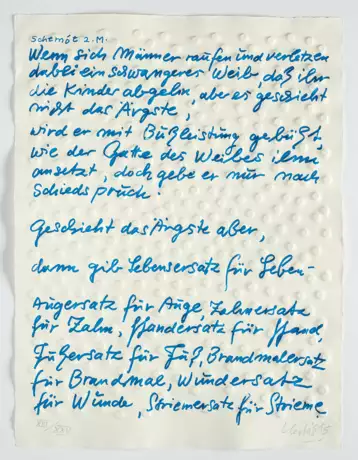 Schemot 2.M.
Wenn sich Männer raufen und verletzen
dabei ein schwangeres Weib, daß ihr
die Kinder abgehn, aber es geschieht
nicht das Ärgste,
wird er mit Bußleistung gebüßt,
wie der Gatte des Weibes ihm
ansetzt, doch gebe er nur nach
Schiedspruch.
Geschieht das Ärgste aber,
dann gib Lebensersatz für Leben-
Augersatz für Auge, Zahnersatz
für Zahn, Handersatz für Hand,
Fußersatz für Fuß, Brandmalersatz
für Brandmal, Wundersatz
für Wunde, Striemersatz für Strieme